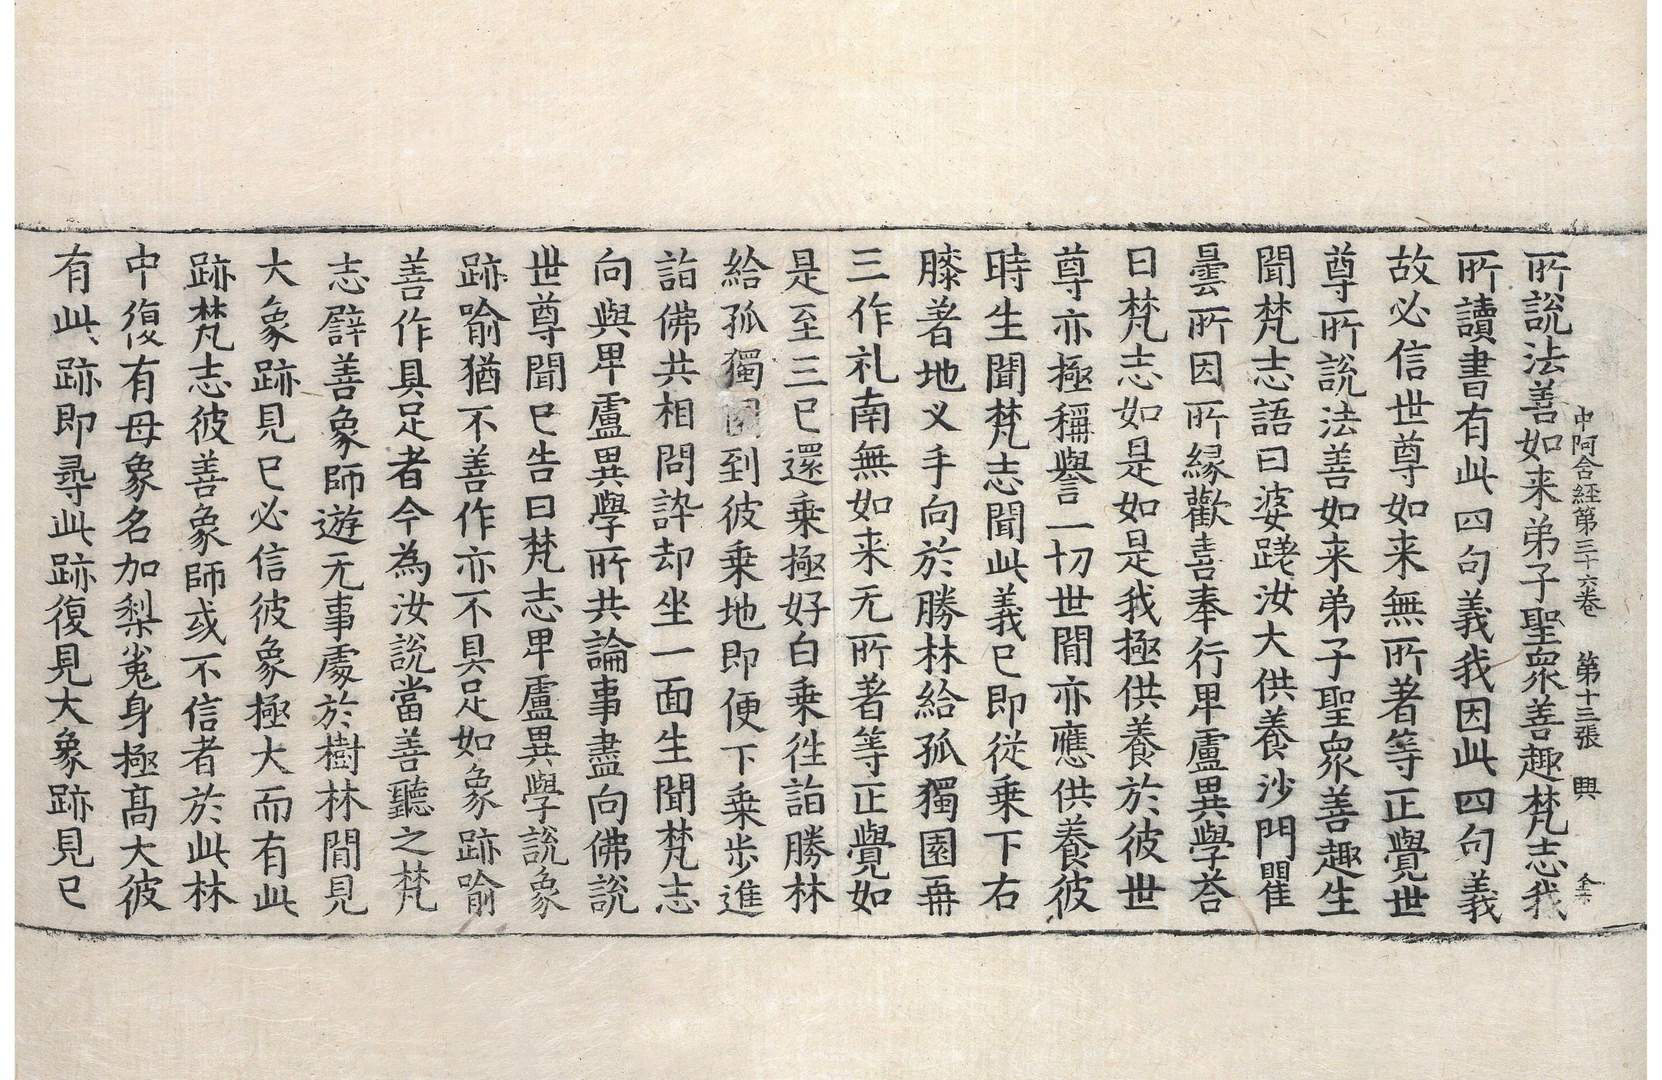 中阿含経第三十六卷 第十三張 興
所說法善如来弟子聖衆善趣梵志我
所讀書有此四句義我因此四句義
故必信世尊如来無所著等正覺世
尊所說法善如来弟子聖衆善趣生
聞梵志語曰婆蹉汝大供養沙門瞿
曇所因所緣歡喜奉行卑盧異學荅
曰梵志如是如是我極供養於彼世
尊亦極稱譽一切世間亦應供養彼
時生聞梵志聞此義已即從乗下右
膝著地叉手向於勝林給孤獨園再
三作礼南無如来无所著等正覺如
是至三已還乗極好白乗徃詣勝林
給孤獨園到彼乗地即便下乗步進
詣佛共相問訊却坐一面生聞梵志
向與卑盧異學所共論事盡向佛說
世尊聞已告曰梵志卑盧異學說象
跡喻猶不善作亦不具足如象跡喻
善作具足者今為汝說當善聽之梵
志譬善象師遊无事處於樹林間見
大象跡見已必信彼象極大而有此
跡梵志彼善象師或不信者於此林
中復有母象名加梨㝹身極髙大彼
有此跡即尋此跡復見大象跡見已